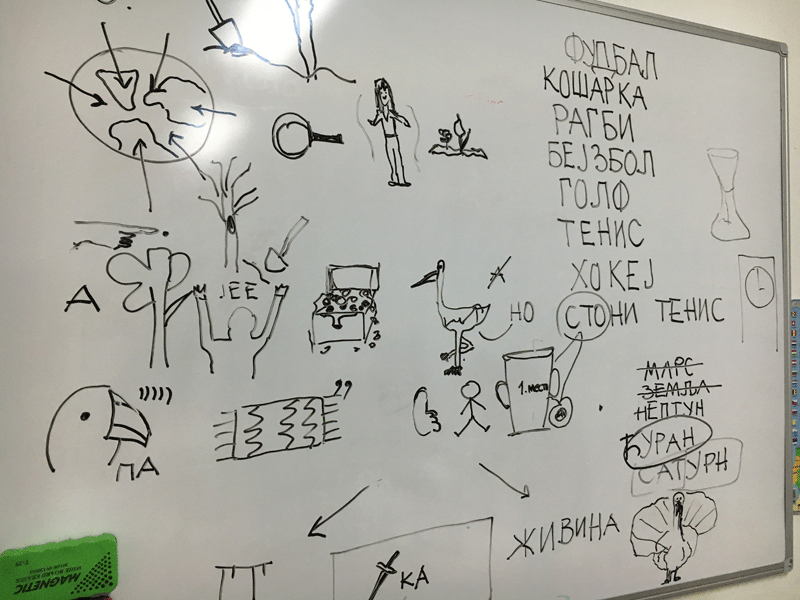 ФУДБАЛ
КОШАРКА
РАГБИ
БЕЈЗБОЛ
ГОЛФ
ТЕНИС
ХОКЕЈ
СТОНИ ТЕНИС
А
ЈЕЕ
А
НО
1. место
МАРС
ЗЕМЉА
НЕПТУН
ЂУРАН
САТУРН
ПА
ЖИВИНА
КА
MAGNETIC